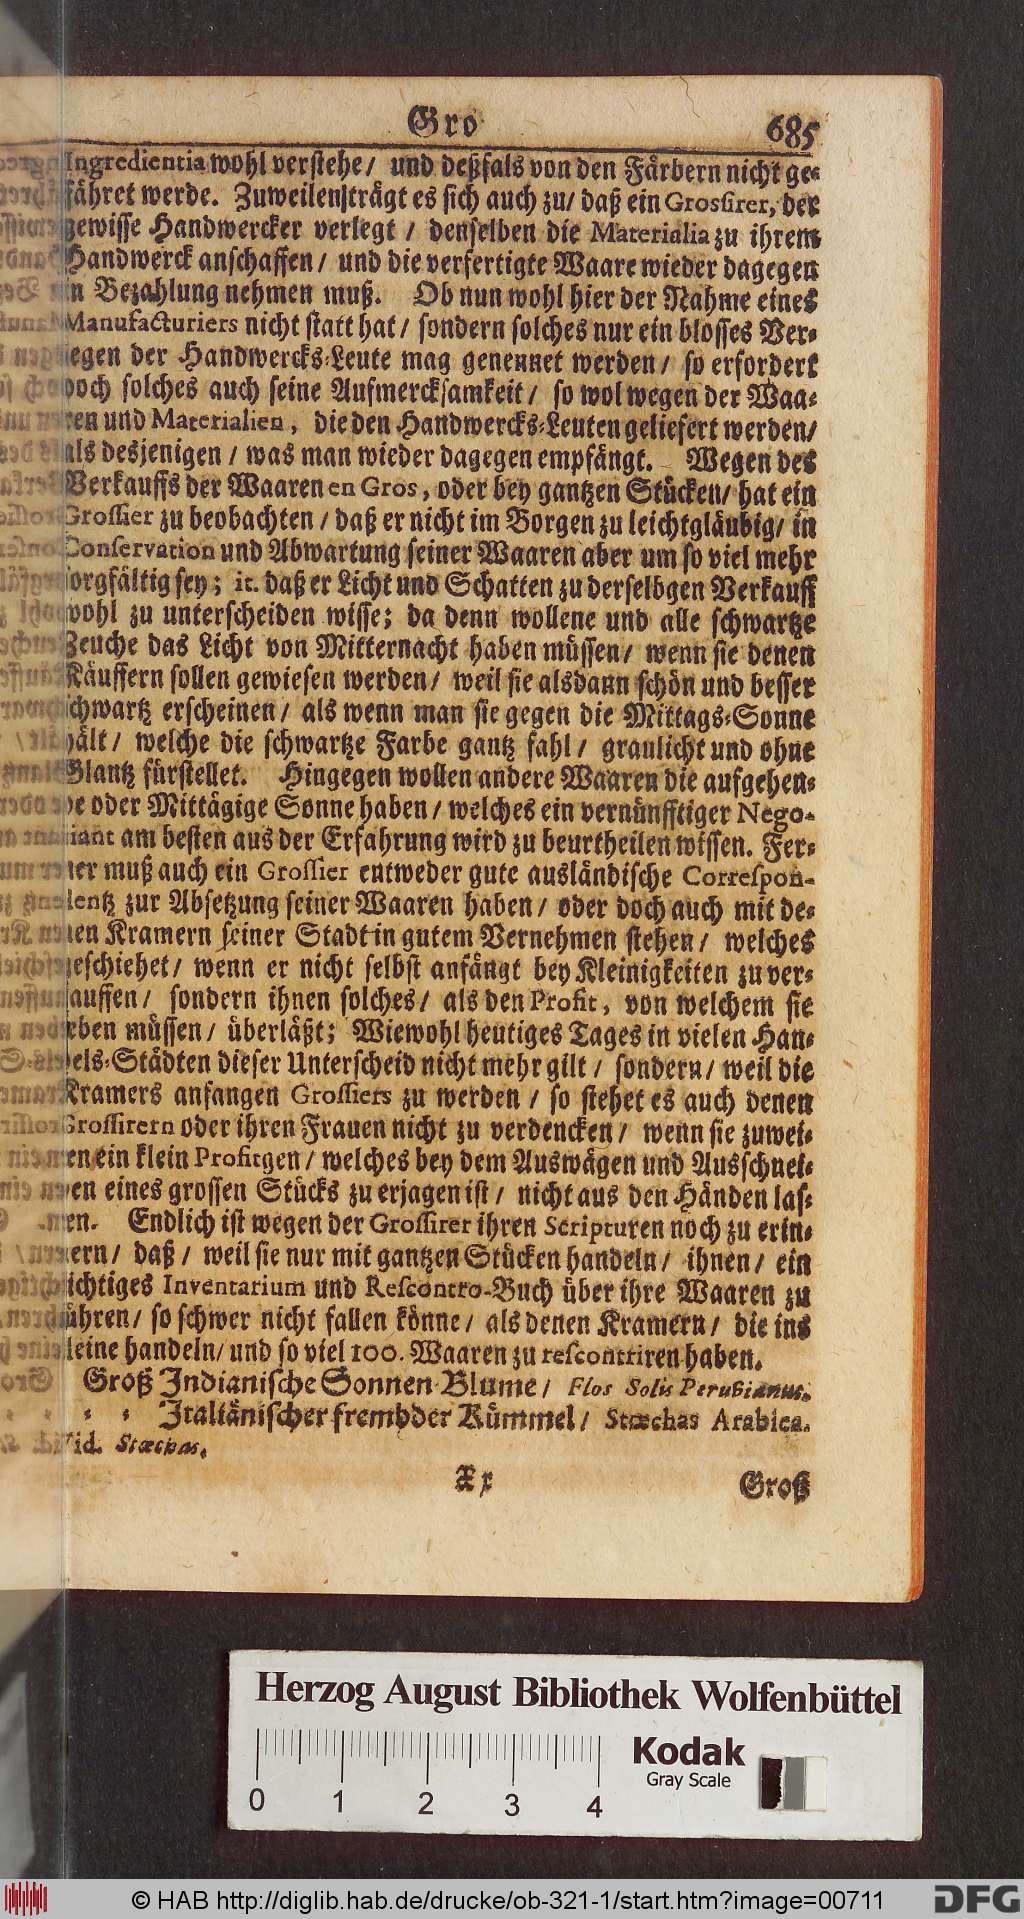 Gro 685
Ingredientia wohl verstehe/ und deßfals von den Färbern nicht ge-
fähret werde. Zuweilen trägt es sich auch zu/ daß ein Grossirer, der
gewisse Handwercker verlegt / denselben die Materialia zu ihrem
Handwerck anschaffen/ und die verfertigte Waare wieder dagegen
in Bezahlung nehmen muß. Ob nun wohl hier der Nahme eines
Manufacturiers nicht statt hat/ sondern solches nur ein blosses Ver-
legen der Handwercks-Leute mag genennet werden/ so erfordert
doch solches auch seine Aufmercksamkeit/ so wol wegen der Waa-
ren und Materialien, die den Handwercks-Leuten geliefert werden/
als desjenigen / was man wieder dagegen empfängt. Wegen des
Verkauffs der Waaren en Gros, oder bey gantzen Stücken/ hat ein
Grossier zu beobachten / daß er nicht im Borgen zu leichtgläubig/ in
Conservation und Abwartung seiner Waaren aber um so viel mehr
sorgfältig sey; it. daß er Licht und Schatten zu derselbgen Verkauff
wohl zu unterscheiden wisse; da denn wollene und alle schwartze
Zeuche das Licht von Mitternacht haben müssen/ wenn sie denen
Käuffern sollen gewiesen werden/ weil sie alsdann schön und besser
schwartz erscheinen/ als wenn man sie gegen die Mittags-Sonne
hält/ welche die schwartze Farbe gantz fahl/ graulicht und ohne
Glantz fürstellet. Hingegen wollen andere Waaren die aufgehen-
de oder Mittägige Sonne haben/ welches ein vernünfftiger Nego-
tiant am besten aus der Erfahrung wird zu beurtheilen wissen. Fer-
ner muß auch ein Grossier entweder gute ausländische Correspon-
dentz zur Absetzung seiner Waaren haben/ oder doch auch mit de-
nen Kramern seiner Stadt in gutem Vernehmen stehen/ welches
geschiehet/ wenn er nicht selbst anfängt bey Kleinigkeiten zu ver-
kauffen/ sondern ihnen solches/ als den Profit, von welchem sie
leben müssen/ überläßt; Wiewohl heutiges Tages in vielen Han-
dels-Städten dieser Unterscheid nicht mehr gilt / sondern/ weil die
Kramers anfangen Grossiers zu werden / so stehet es auch denen
Grossirern oder ihren Frauen nicht zu verdencken/ wenn sie zuwei-
len ein klein Profitgen/ welches bey dem Auswägen und Ausschnei-
den eines grossen Stücks zu erjagen ist/ nicht aus den Händen las-
sen. Endlich ist wegen der Grossirer ihren Scripturen noch zu erin-
nern/ daß / weil sie nur mit gantzen Stücken handeln/ ihnen/ ein
richtiges Inventarium und Rescontro-Buch über ihre Waaren zu
führen/ so schwer nicht fallen könne/ als denen Kramern/ die ins
kleine handeln/ und so viel 100. Waaren zu rescontriren haben.
Groß Indianische Sonnen-Blume/ Flos Solis Perußianus.
- - Italiänischer frembder Kümmel/ Stœchas Arabica.
Vid. Stœchas.
Xx Groß
Herzog August Bibliothek Wolfenbüttel
Kodak
Gray Scale
0 1 2 3 4
© HAB http://diglib.hab.de/drucke/ob-321-1/start.htm?image=00711
DFG